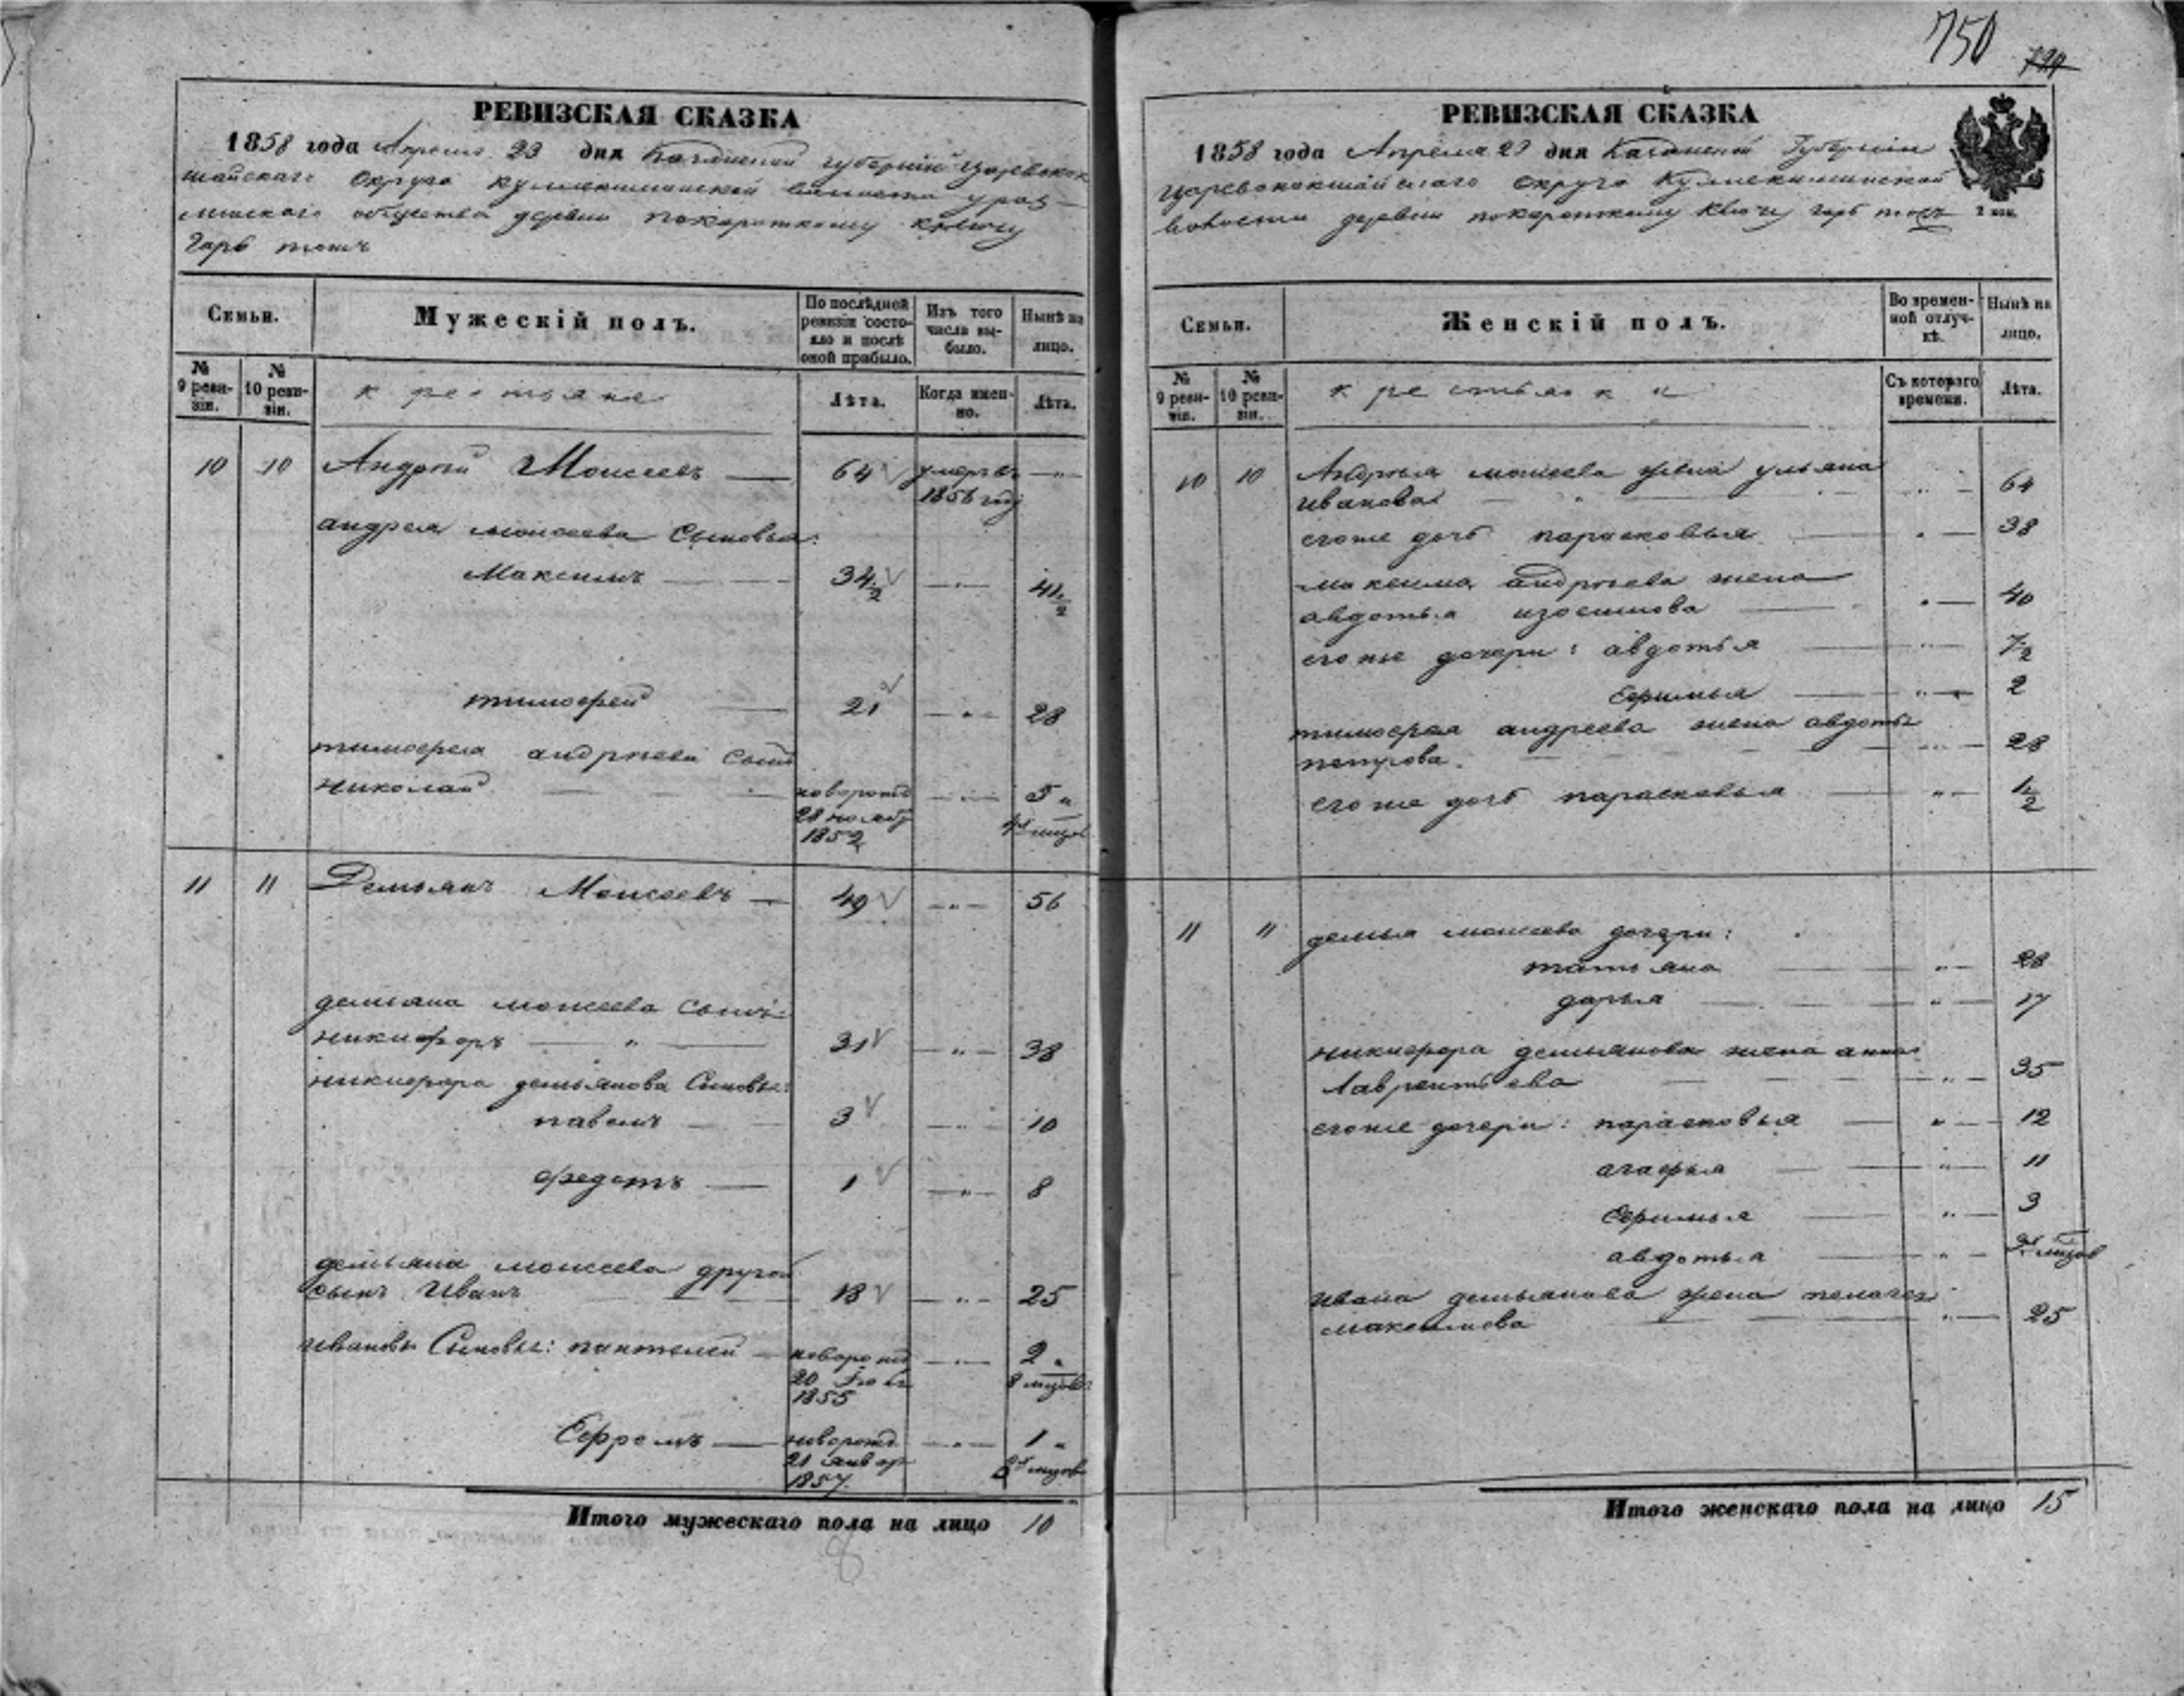 750
РЕВИЗСКАЯ СКАЗКА
1858 года Апреля 23 дня Казанской губернии Царевокок
шайскаго округа
общества деревни покороткому ключу
РЕВИЗСКАЯ СКАЗКА
1858 года Апреля 23 дня Казанской Губернии
Царевококшайскаго округа
волости деревни покороткому ключу
Семьи.
Мужескій полъ.
По послѣдней ревизіи состояло и послѣ оной прибыло.
Изъ того числа выбыло.
Нынѣ на лицо.
№ 9 ревизіи.
№ 10 ревизіи.
крестьяне
Лѣта.
Когда именно.
Лѣта.
10 10 Андрей Моисеевъ — 64 умеръ въ — " —
1856 году
андрея моисеева сыновья:
Максимъ — 34 1/2 — " — 41 1/2
тимофей — 21 — " — 28
тимофея андреева сынъ
николай — новорожд — " — 5 "
28 ноябр
1852
11 11 Демьянъ Моисеевъ — 49 — " — 56
демьяна моисеева сынъ:
никифоръ — " — 31 — " — 38
никифора демьянова сыновья:
павелъ — 3 — " — 10
федотъ — 1 — " — 8
демьяна моисеева другой
сынъ Иванъ — 18 — " — 25
ивановы сыновья: пантелей — новорожд — " — 2 "
20 8 мцовъ
1855
Ефремъ — новорожд — " — 1 "
21 январ мцов
1857.
Итого мужескаго пола на лицо 10
8
Семьи.
Женскій полъ.
Во временной отлучкѣ.
Нынѣ на лицо.
№ 9 ревизіи.
№ 10 ревизіи.
крестьянки
Съ котораго времени.
Лѣта.
10 10 Андрея моисеева жена ульяна
иванова — " — 64
егоже дочь парасковья — " — 38
максима андреева жена
авдотья изосимова — " — 40
егоже дочери: авдотья — " — 7 1/2
Ефимья — " — 2
тимофея андреева жена авдотья
петрова. — " — 28
егоже дочь парасковья — " — 1/2
11 11 демьяна моисеева дочери:
татьяна — " — 28
дарья — " — 17
никифора демьянова жена анна
лаврентьева — " — 35
егоже дочери: парасковья — " — 12
агафья — " — 11
Ефимья — " — 3
авдотья — " — мцов
ивана демьянова жена пелагея
максимова — " — 25
Итого женскаго пола на лицо 15